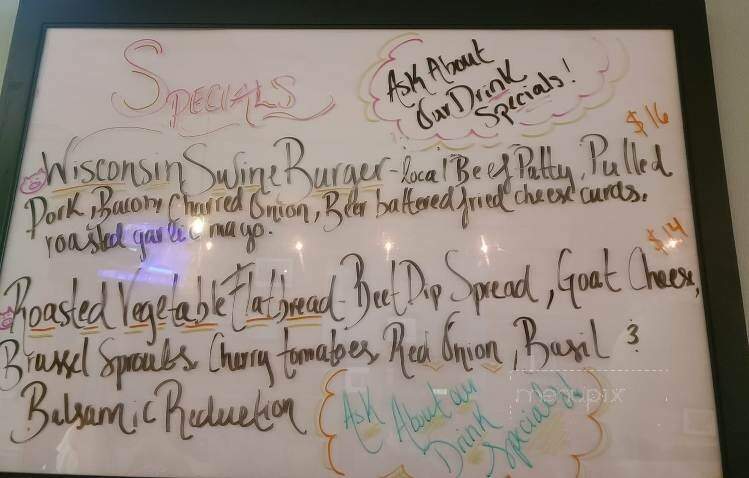 Specials
Ask About
Our Drink
Specials!
$16
Wisconsin Swine Burger - local Beef Patty, Pulled
Pork, Bacon, Charred Onion, Beer battered fried cheese curds,
roasted garlic mayo.
$14
Roasted Vegetable Flatbread - Beet Dip Spread, Goat Cheese,
Brussel Sprouts, Cherry tomatoes, Red Onion, Basil &
Balsamic Reduction
Ask About our
Drink
Specials!
menupix